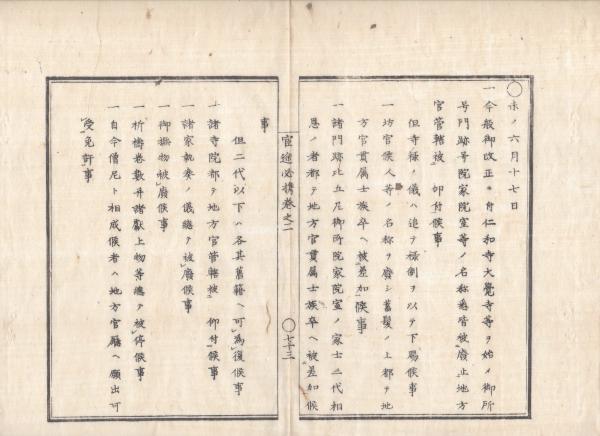 〇未ノ六月十七日
一今般御改正ニ付仁和寺大覺寺等ヲ始メ御所
号門跡号院家院室等ノ名称悉皆被廢止地方
官管轄被　仰付候事
但寺禄ノ儀ハ追テ禄制ヲ以テ下賜候事
一坊官候人等ノ名称ヲ廢シ蓄髪ノ上都テ地
方官貫属士族卒ヘ被差加候事
一諸門跡比丘尼御所院家院室ノ家士二代相
恩ノ者都テ地方官貫属士族卒ヘ被差加候
宦途必携巻之二
〇七十三
事
但二代以下ハ各其舊籍ヘ可為復候事
一諸寺院都テ地方官管轄被　仰付候事
一諸家執奏ノ儀總テ被廢候事
一御撫物被廢候事
一祈祷巻数并諸献上物等總テ被停候事
一自今僧尼ト相成候者ハ地方官廳ヘ願出可
受免許事